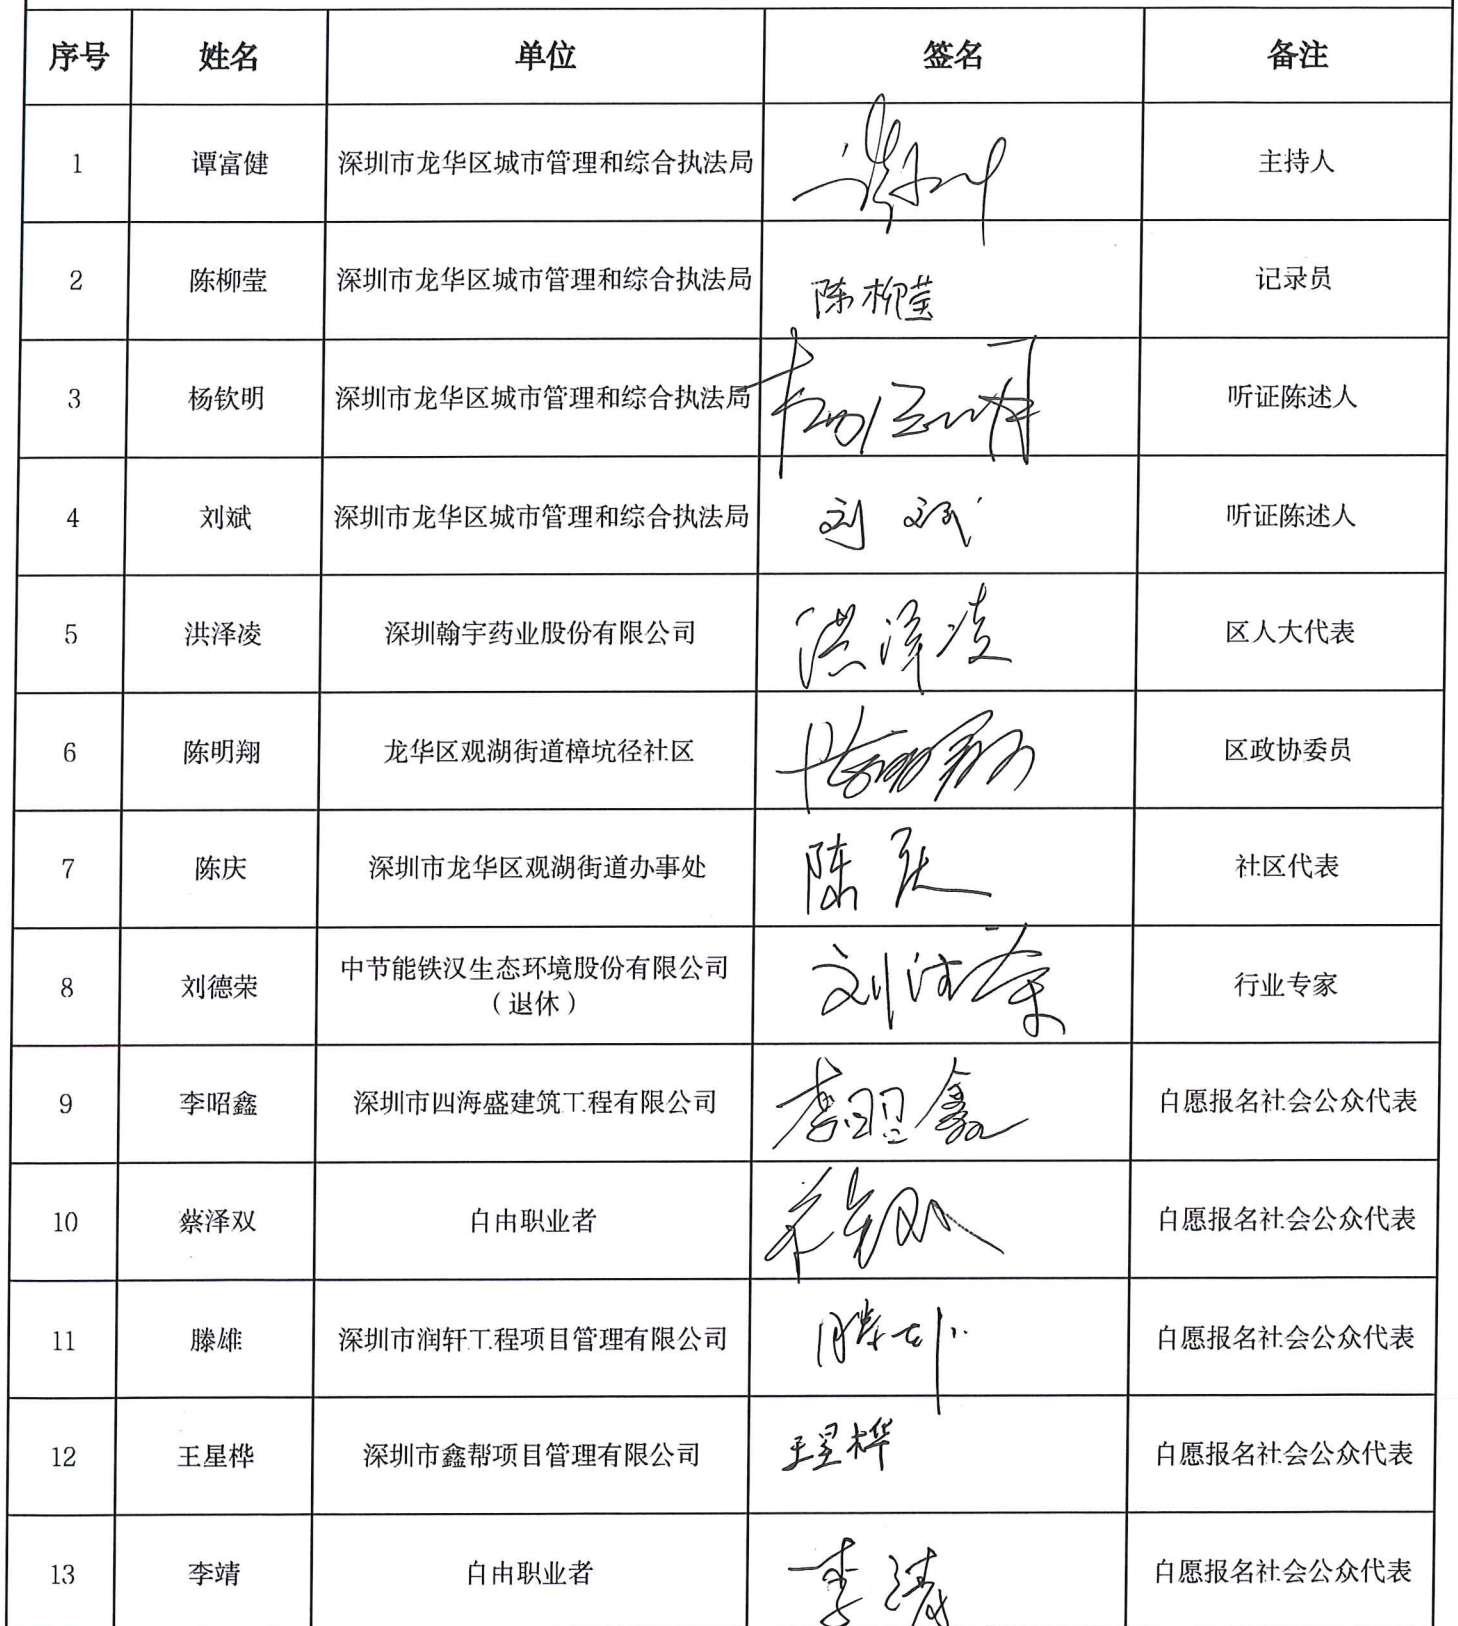 序号 姓名 单位 签名 备注
1 谭富健 深圳市龙华区城市管理和综合执法局 主持人
2 陈柳莹 深圳市龙华区城市管理和综合执法局 陈柳莹 记录员
3 杨钦明 深圳市龙华区城市管理和综合执法局 听证陈述人
4 刘斌 深圳市龙华区城市管理和综合执法局 刘斌 听证陈述人
5 洪泽凌 深圳翰宇药业股份有限公司 洪泽凌 区人大代表
6 陈明翔 龙华区观湖街道樟坑径社区 区政协委员
7 陈庆 深圳市龙华区观湖街道办事处 陈庆 社区代表
8 刘德荣 中节能铁汉生态环境股份有限公司
（退休） 刘德荣 行业专家
9 李昭鑫 深圳市四海盛建筑工程有限公司 李昭鑫 自愿报名社会公众代表
10 蔡泽双 自由职业者 自愿报名社会公众代表
11 滕雄 深圳市润轩工程项目管理有限公司 滕雄 自愿报名社会公众代表
12 王星桦 深圳市鑫帮项目管理有限公司 王星桦 自愿报名社会公众代表
13 李靖 自由职业者 李靖 自愿报名社会公众代表